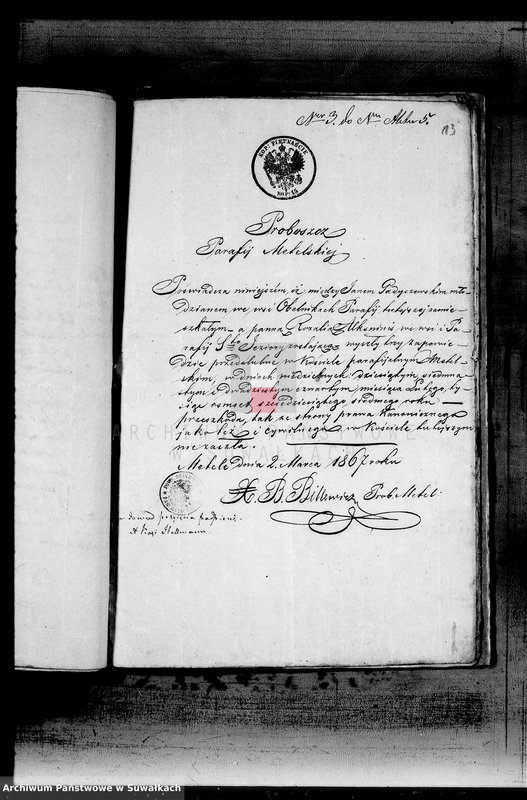 Nro 3. do Nru Aktu 5.
113
KOP. PIETNAŚCIE
KOP. 15
Proboszcz
Parafij Metelskiej
Poświadcza niniejszém, iż między Janem Padyszewskim mło-
dzianem we wsi Obelnikach Parafij tutejszej zamie-
szkałym a panną Rozalią we wsi i Pa-
rafij Jeziory zostającą wyszły trzy zapowie-
dzie przedślubne w Kościele parafijalnym Metel-
skim, w dniach niedzielnych dziesiątym, siedmna-
stym i dwudziestym czwartym miesiąca Lutego, ty-
siąc ośmset sześćdziesiątego siódmego roku
przeszkoda, tak ze strony prawa Kanonicznego
jako też i cywilnego, w Kościele tutejszym
nie zaszła.
Metele dnia 2. Marca 1867 roku
X. B. Billewicz Prob. Metel.
ARCHIWUM PAŃSTWOWE
W SUWAŁKACH
Archiwum Państwowe w Suwałkach